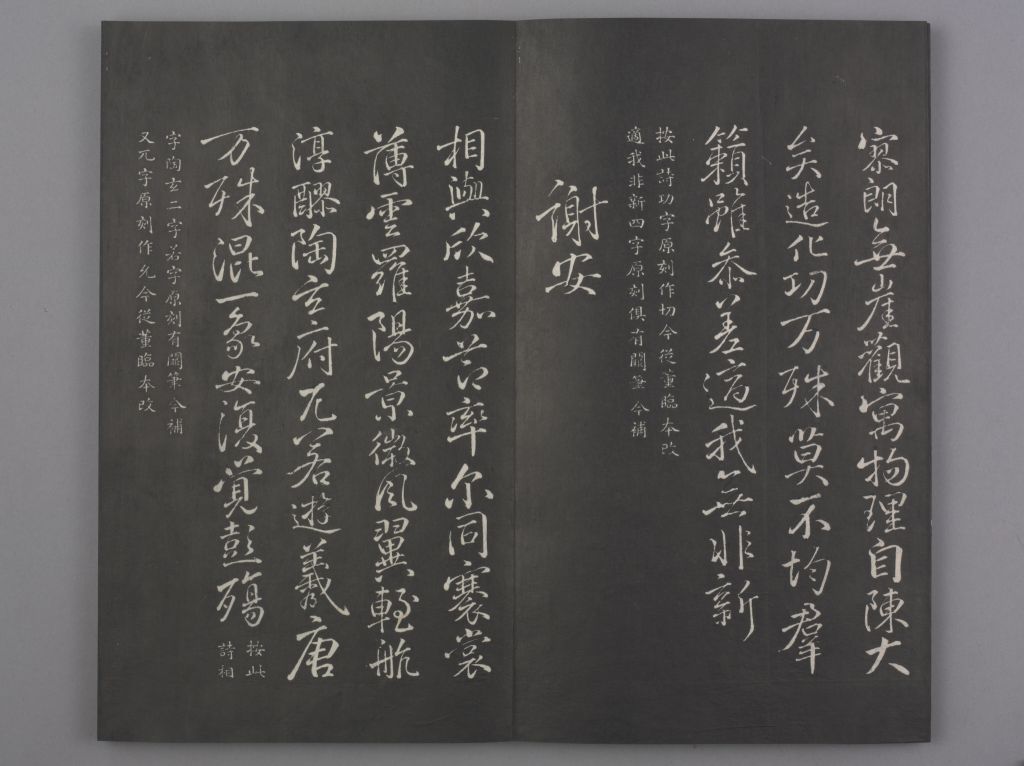 寥朗無崖觀寓物理自陳大
矣造化功万殊莫不均羣
籟雖叅差適我無非新
按此詩功字原刻作切今從董臨本改
適我非新四字原刻俱有闕筆今補
謝安
相與欣嘉節率尔同褰裳
薄雲羅陽景微風翼輕航
淳醪陶玄府兀若遊羲唐
万殊混一象安復覺彭殤
按此
詩相
字陶玄二字若字原刻有闕筆今補
又兀字原刻作允今從董臨本改